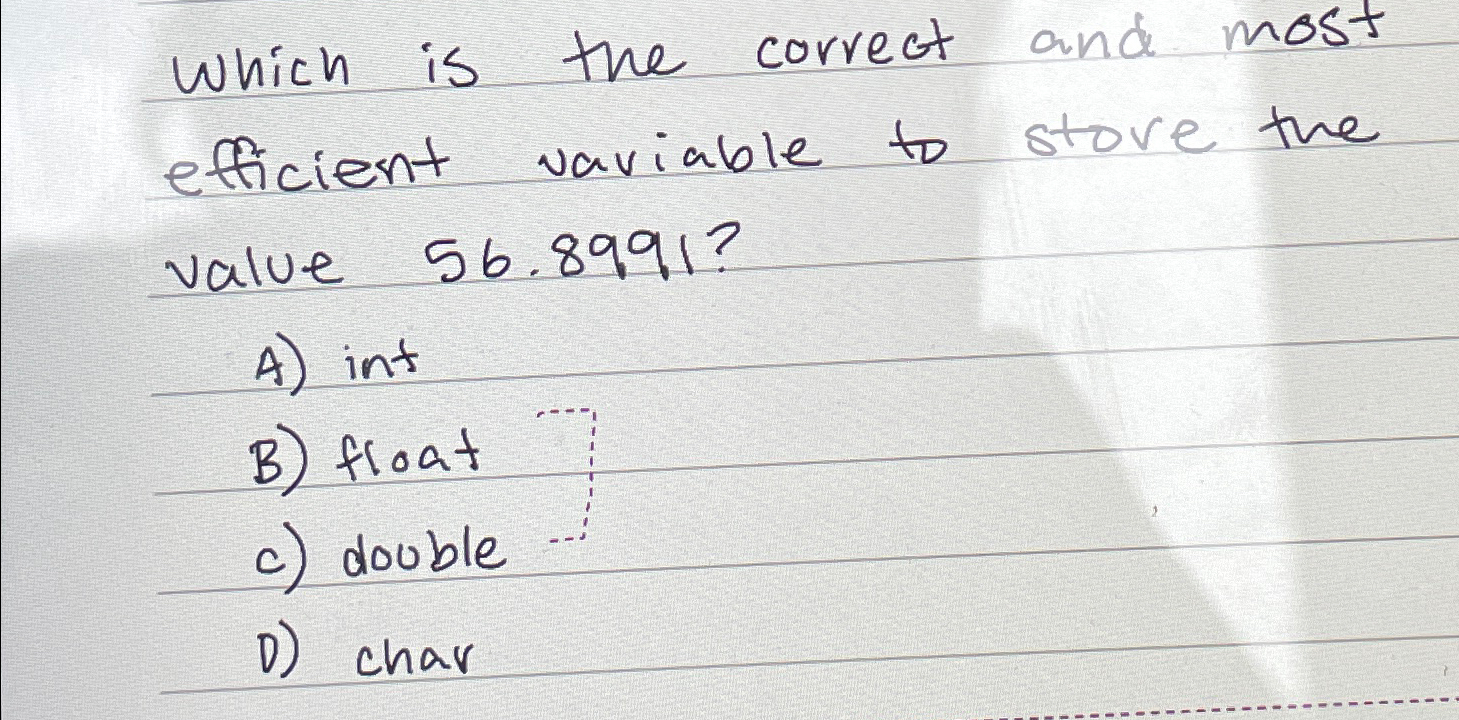 Which is the correct and most
efficient variable to store the
value 56.8991?
A) int
B) float
C) double
D) char